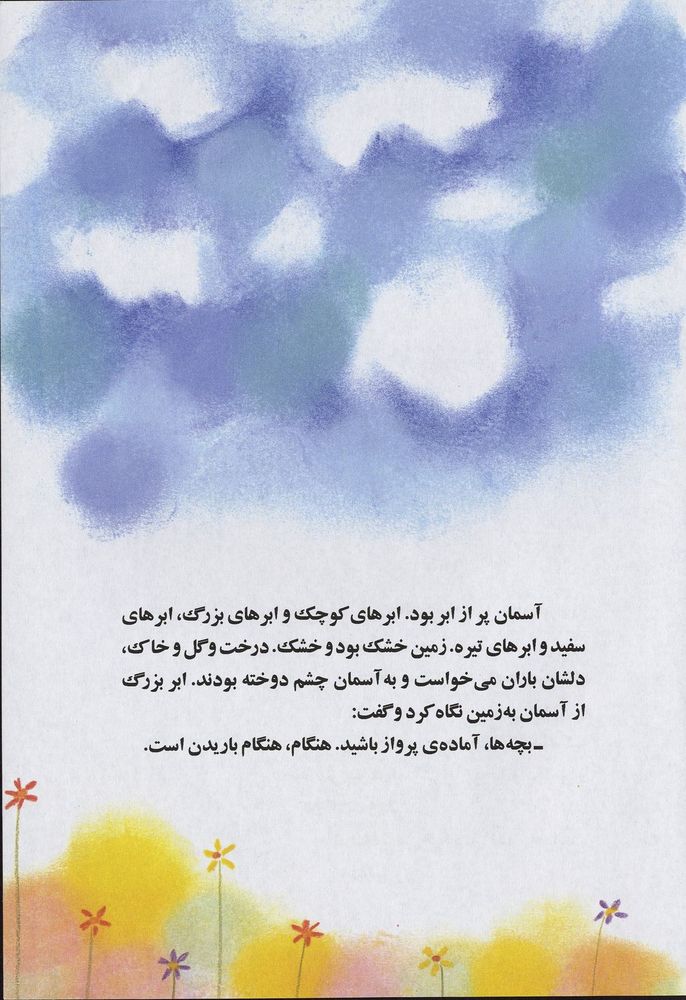 آسمان پر از ابر بود. ابرهای کوچک و ابرهای بزرگ، ابرهای
سفید و ابرهای تیره. زمین خشک بود و خشک. درخت و گل و خاک،
دلشان باران می‌خواست و به آسمان چشم دوخته بودند. ابر بزرگ
از آسمان به زمین نگاه کرد و گفت:
ـ بچه‌ها، آماده‌ی پرواز باشید. هنگام، هنگام باریدن است.